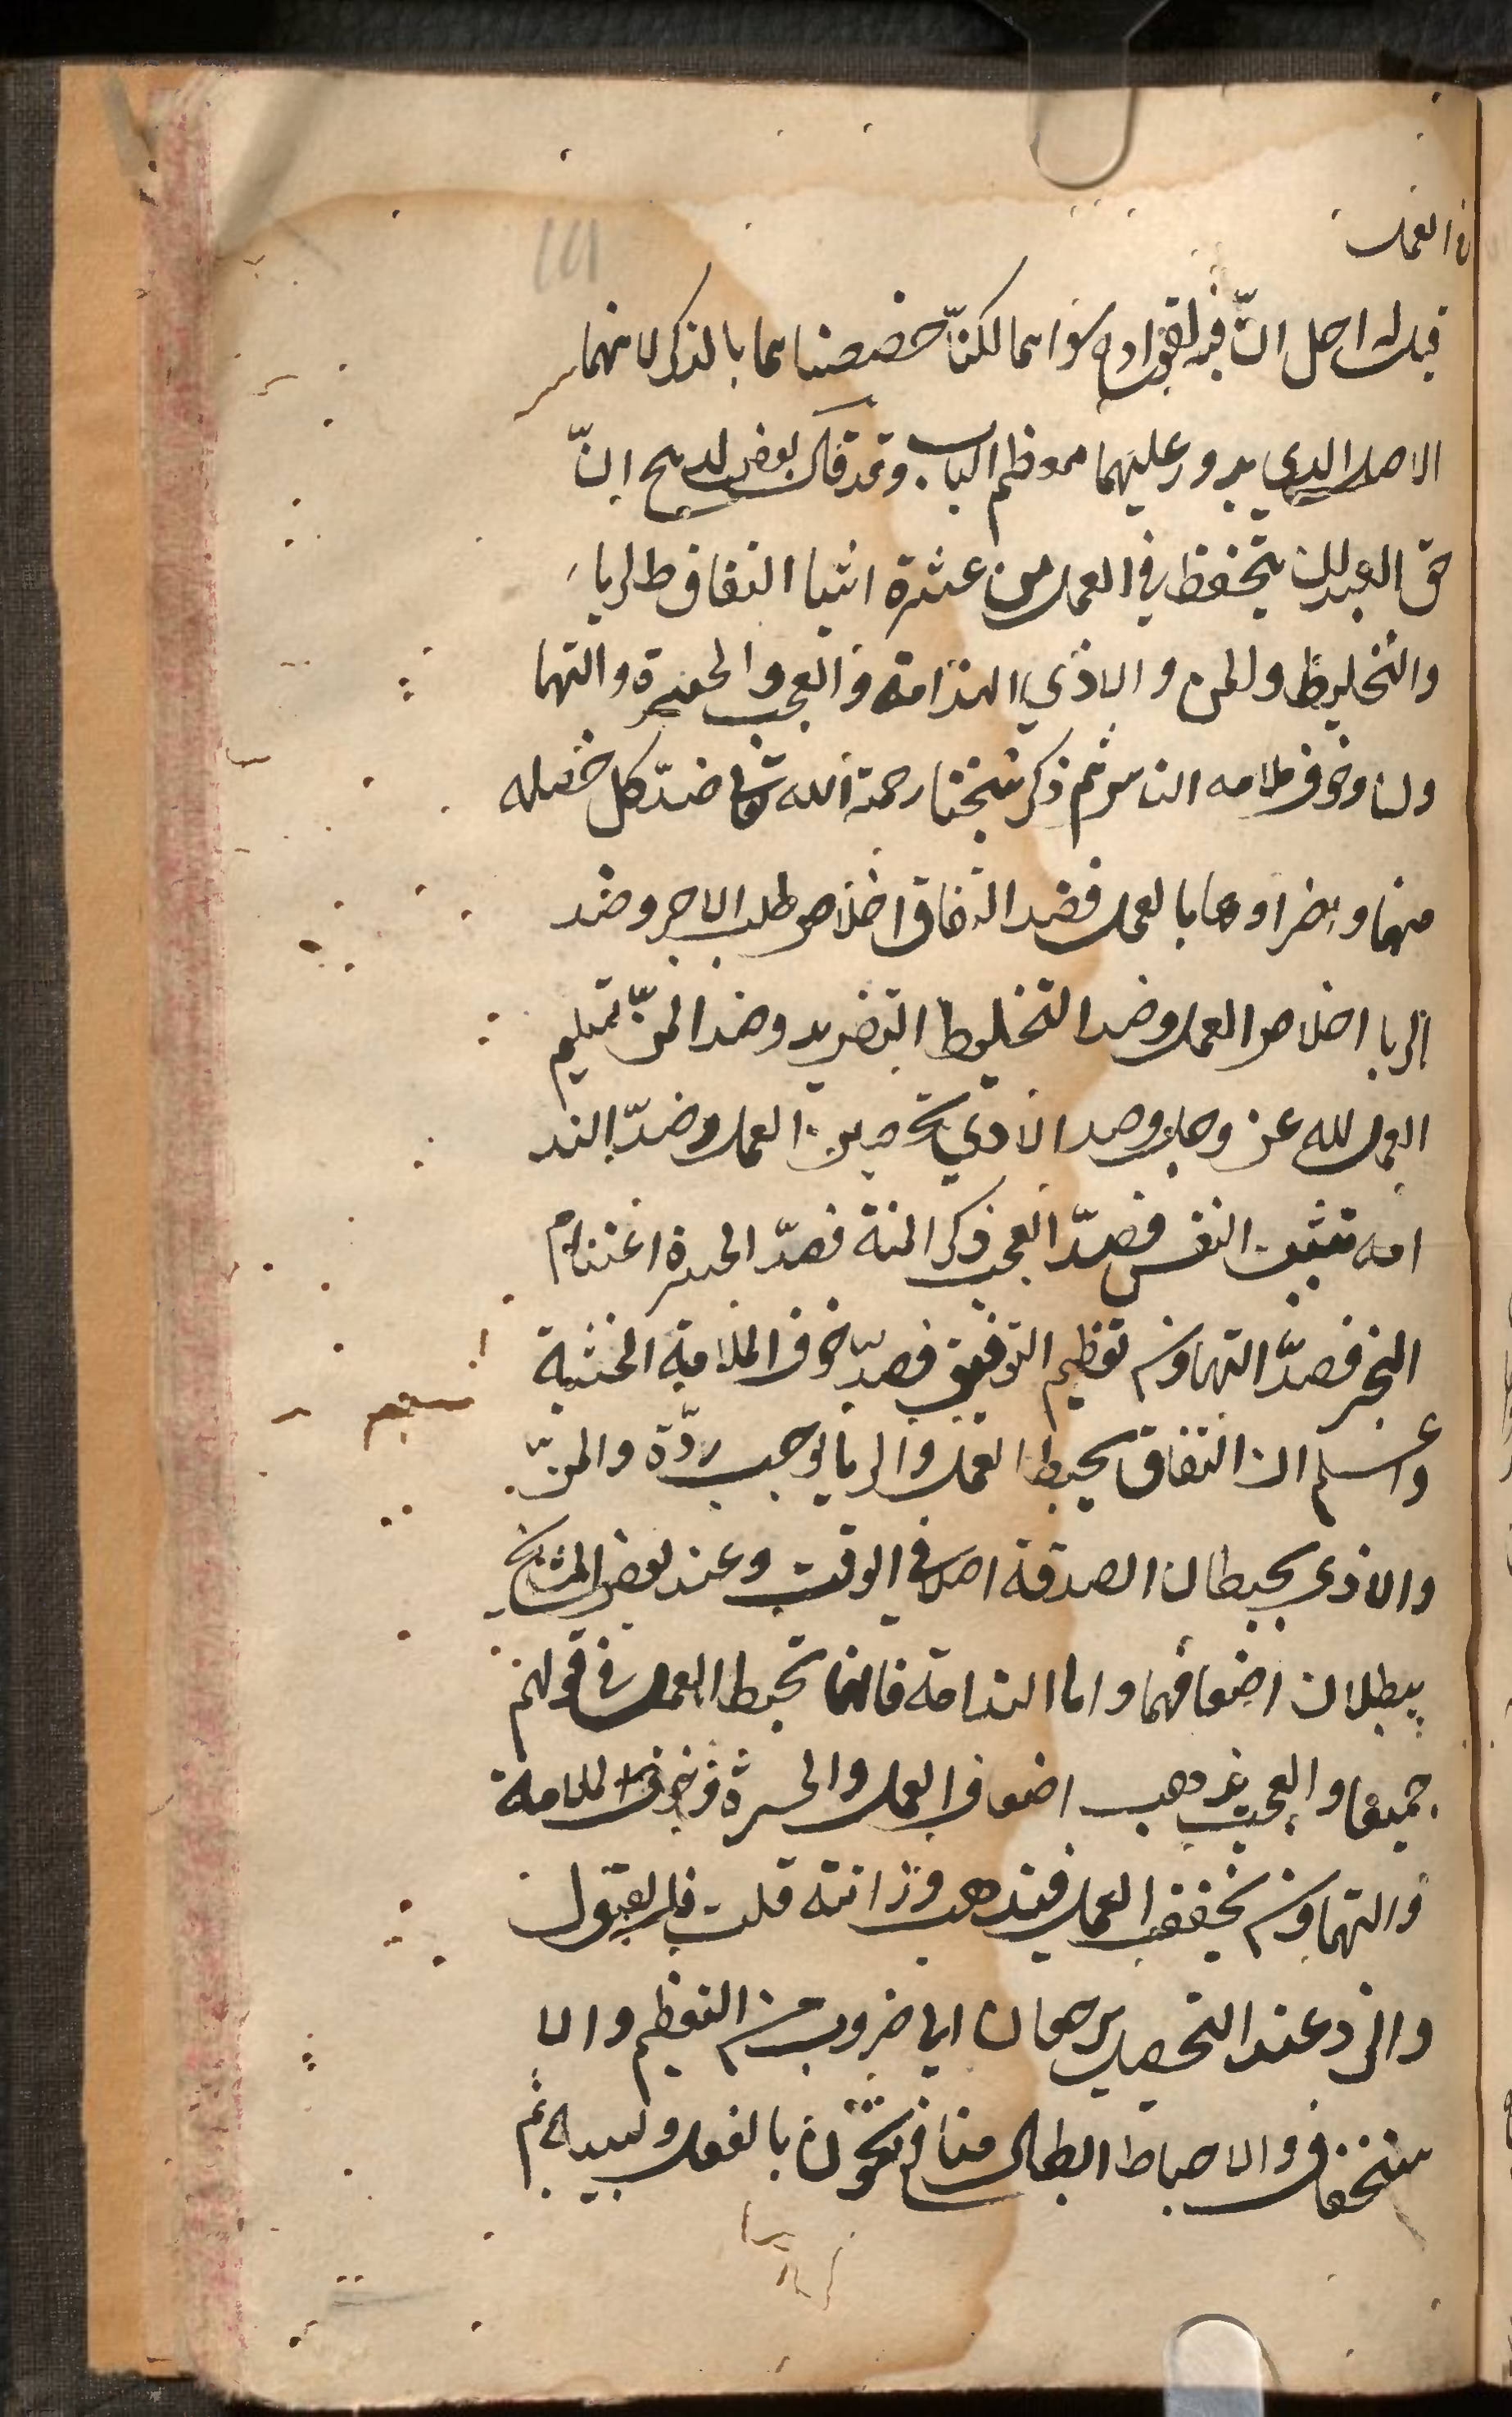 في العمل
١٢١
الاصل الدي يدور عليهما معظم الباب وقد قال بعض ان
حق العبد ان يتحفظ في العمل من عشرة اشيا النفاق والريا
والتخليط والمن والاذي الندامة والعجب والحسرة والتها
ون وخوف ملامه الناس ثم ذكر شيخنا رحمة الله ضد كل خصله
منها واضرارها بالعمل فضد النفاق اخلاص طلب الاجر وضد
الريا اخلاص العمل وضد التخليط التفريد وضد المن تسليم
العمل لله عز وجل وضد الاذي تحصين العمل وضد الند
امه تثبيت النفس فصد العجب ذكر المنة فصد الحسرة اغتنام
الخير فصد التهاون تعظيم التوفيق فصد خوف الملامة الخشية
واعلم ان النفاق يحبط العمل والريا يوجب ردة والمن
والاذي يحبطان الصدقة اصلا في الوقت وعند بعض المشايخ
يبطلان اضعافهما واما الندامة فانها تحبط العمل في قولهم
جميعا والعجب يذهب اضعاف العمل والحسرة وخوف الملامة
والتهاون يخفف العمل فيذهب وزانته قلت فالقبول
والرد عند التحصيل يرجعان الي ضروب من التعظيم والا
ستخفاف والاحباط ابطال منافع تكون بالفعل وبسببه ثم